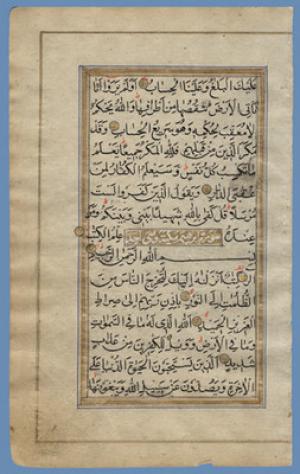 عَلَيْكَ الْبَلٰغُ وَعَلَيْنَا الْحِسَابُ اَوَلَمْ يَرَوْا اَنَّا
نَاْتِى الْاَرْضَ نَنْقُصُهَا مِنْ اَطْرَافِهَا وَاللّٰهُ يَحْكُمُ
لَا مُعَقِّبَ لِحُكْمِهٖ وَهُوَ سَرِيعُ الْحِسَابِ وَقَدْ
مَكَرَ الَّذِينَ مِنْ قَبْلِهِمْ فَلِلّٰهِ الْمَكْرُ جَمِيعًا يَعْلَمُ
مَا تَكْسِبُ كُلُّ نَفْسٍ وَسَيَعْلَمُ الْكُفَّارُ لِمَنْ
عُقْبَى الدَّارِ وَيَقُولُ الَّذِينَ كَفَرُوا لَسْتَ
مُرْسَلًا قُلْ كَفٰى بِاللّٰهِ شَهِيدًا بَيْنِى وَبَيْنَكُمْ وَمَنْ
عِنْدَهُ سورة عِلْمُ الْكِتٰبِ
بِسْمِ اللّٰهِ الرَّحْمٰنِ الرَّحِيمِ
الٓرٰ كِتٰبٌ اَنْزَلْنٰهُ اِلَيْكَ لِتُخْرِجَ النَّاسَ مِنَ
الظُّلُمَاتِ اِلَى النُّورِ بِاِذْنِ رَبِّهِمْ اِلٰى صِرَاطِ
الْعَزِيزِ الْحَمِيدِ اَللّٰهِ الَّذِى لَهُ مَا فِى السَّمٰوَاتِ
وَمَا فِى الْاَرْضِ وَوَيْلٌ لِلْكٰفِرِينَ مِنْ عَذَابٍ
شَدِيدٍ اَلَّذِينَ يَسْتَحِبُّونَ الْحَيٰوةَ الدُّنْيَا عَلَى
الْاٰخِرَةِ وَيَصُدُّونَ عَنْ سَبِيلِ اللّٰهِ وَيَبْغُونَهَا